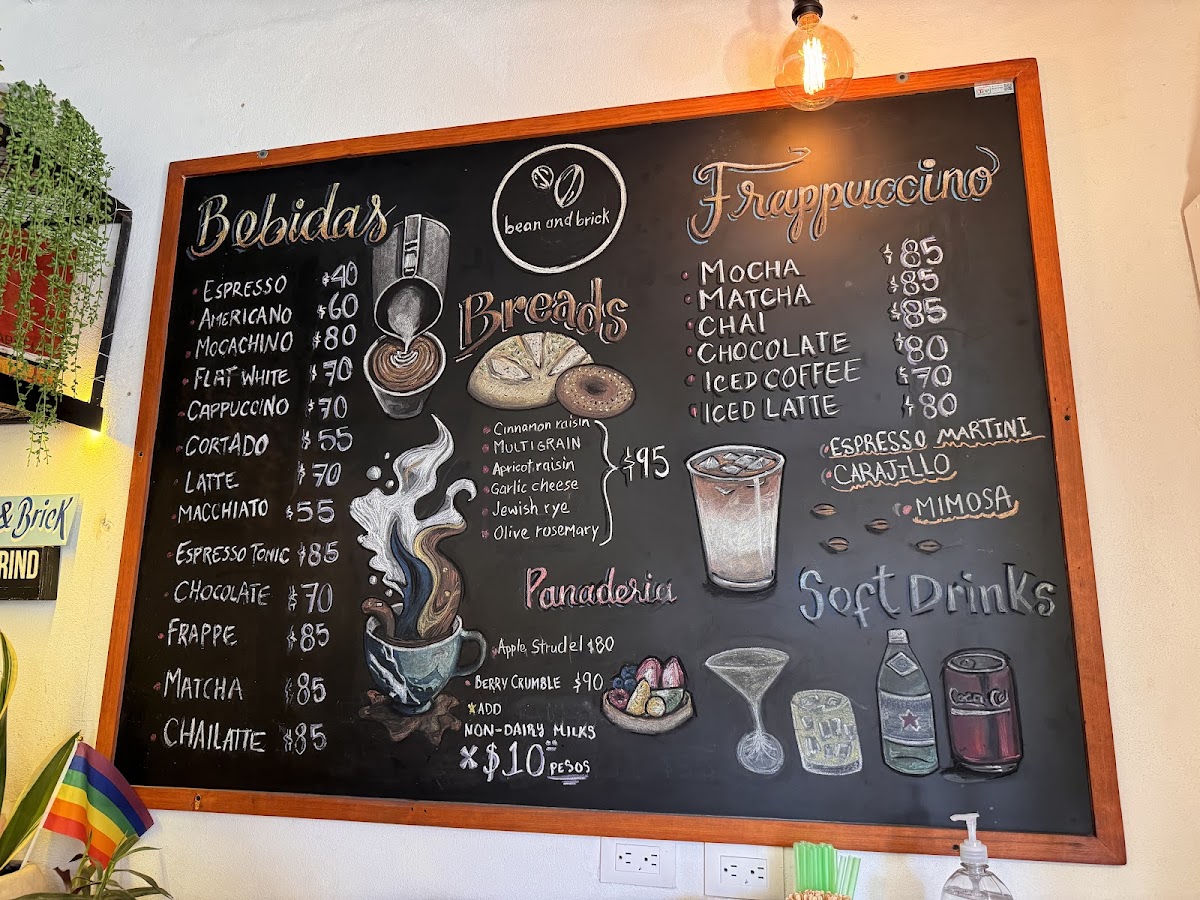 bean and brick
Bebidas
ESPRESSO $40
AMERICANO $60
MOCACHINO $80
FLAT WHITE $70
CAPPUCCINO $70
CORTADO $55
LATTE $70
MACCHIATO $55
ESPRESSO TONIC $85
CHOCOLATE $70
FRAPPE $85
MATCHA $85
CHAILATTE $85
Breads
Cinnamon raisin
MULTIGRAIN
Apricot raisin
Garlic cheese
Jewish rye
Olive rosemary
$95
Panaderia
Apple Strudel $80
BERRY CRUMBLE $90
ADD
NON-DAIRY MILKS
x $10 PESOS
Frappuccino
MOCHA $85
MATCHA $85
CHAI $85
CHOCOLATE $80
ICED COFFEE $70
ICED LATTE $80
ESPRESSO MARTINI
CARAJILLO
MIMOSA
Soft Drinks
& Brick
RIND